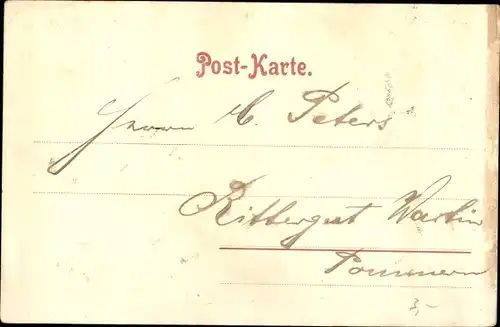 Post-Karte.
Herrn C. Peters
Rittergut Wartin
Pommern
3,-